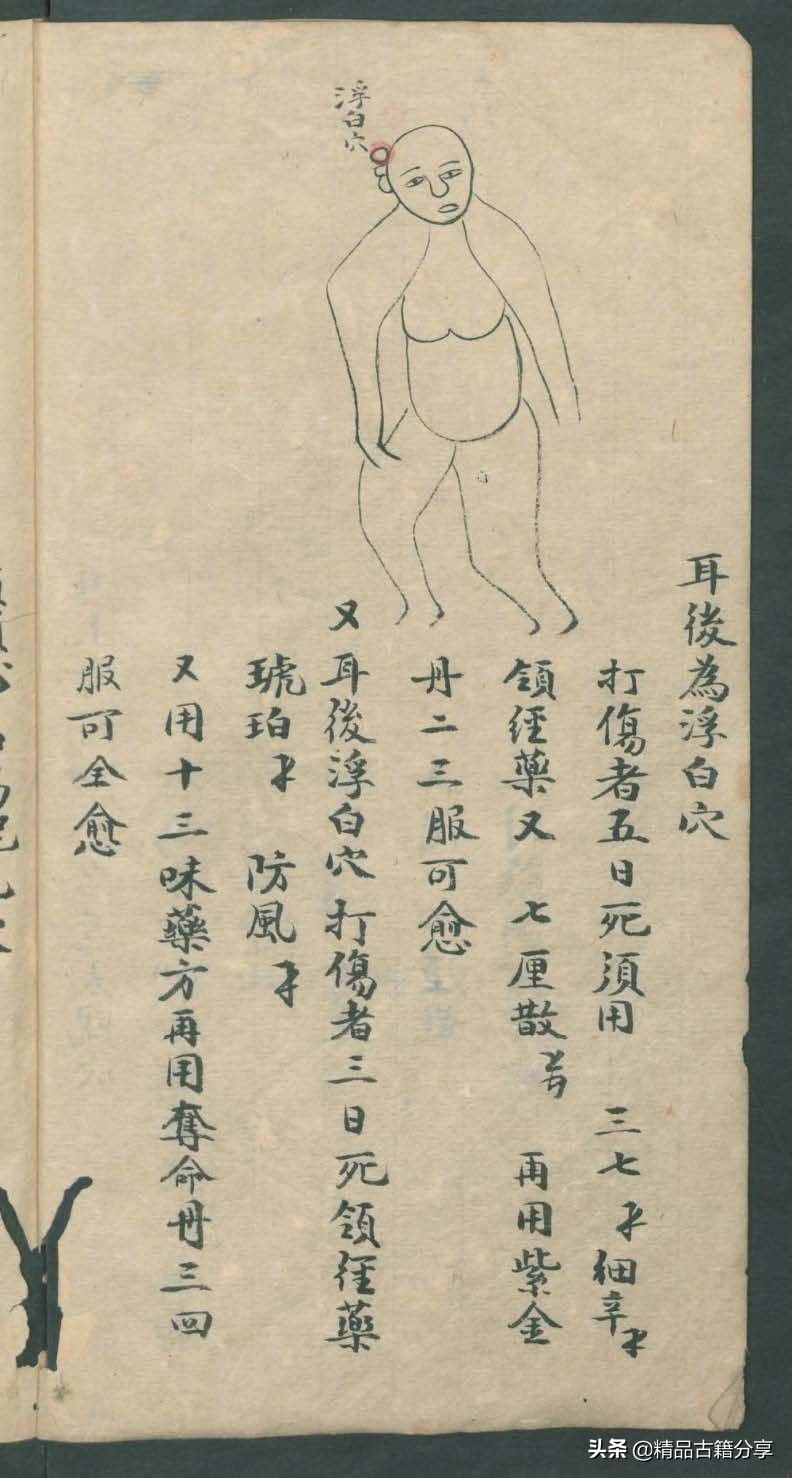 浮白穴
耳後為浮白穴
打傷者五日死須用 三七 细辛
領經藥又 七厘散 再用紫金
丹二三服可愈
又耳後浮白穴打傷者三日死領經藥
琥珀 防風
又用十三味藥方再用奪命丹三四
服可全愈
头条 @精品古籍分享